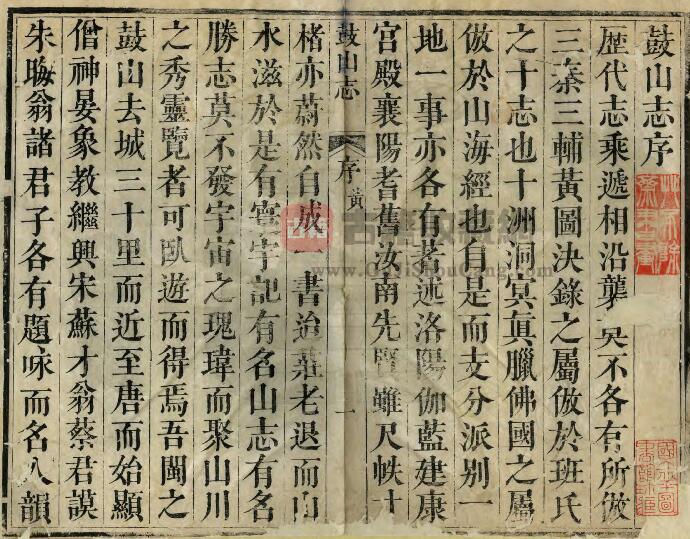 鼓山志序
歷代志乘遞相沿襲莫不各有所倣
三秦三輔黃圖決錄之屬倣於班氏
之十志也十洲洞冥眞臘佛國之屬
倣於山海經也自是而支分派别一
地一事亦各有著述洛陽伽藍建康
宮殿襄陽耆舊汝南先賢雖尺帙寸
鼓山志
序
黃
一
楮亦蔚然自成一書迨莊老退而山
水滋於是有寰宇記有名山志有名
勝志莫不發宇宙之瑰瑋而聚山川
之秀靈覽者可臥遊而得焉吾閩之
鼓山去城三十里而近至唐而始顯
僧神晏象教繼興宋蘇才翁蔡君謨
朱晦翁諸君子各有題咏而名人韻